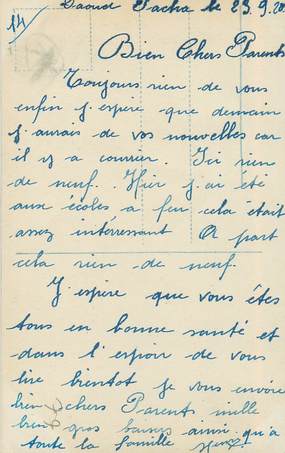 14
Daoud Pacha le 23.9.20
Bien Chers Parents
Toujours rien de vous
enfin j'espère que demain
j'aurais de vos nouvelles car
il y a courrier. Ici rien
de neuf. Hier j'ai été
aux écoles a feu cela était
assez intérressant A part
cela rien de neuf.
J'espère que vous êtes
tous en bonne santé et
dans l'espoir de vous
lire bientot je vous envoie
bien chers Parents mille
bien gros baisers ainsi qu'a
toute la famille